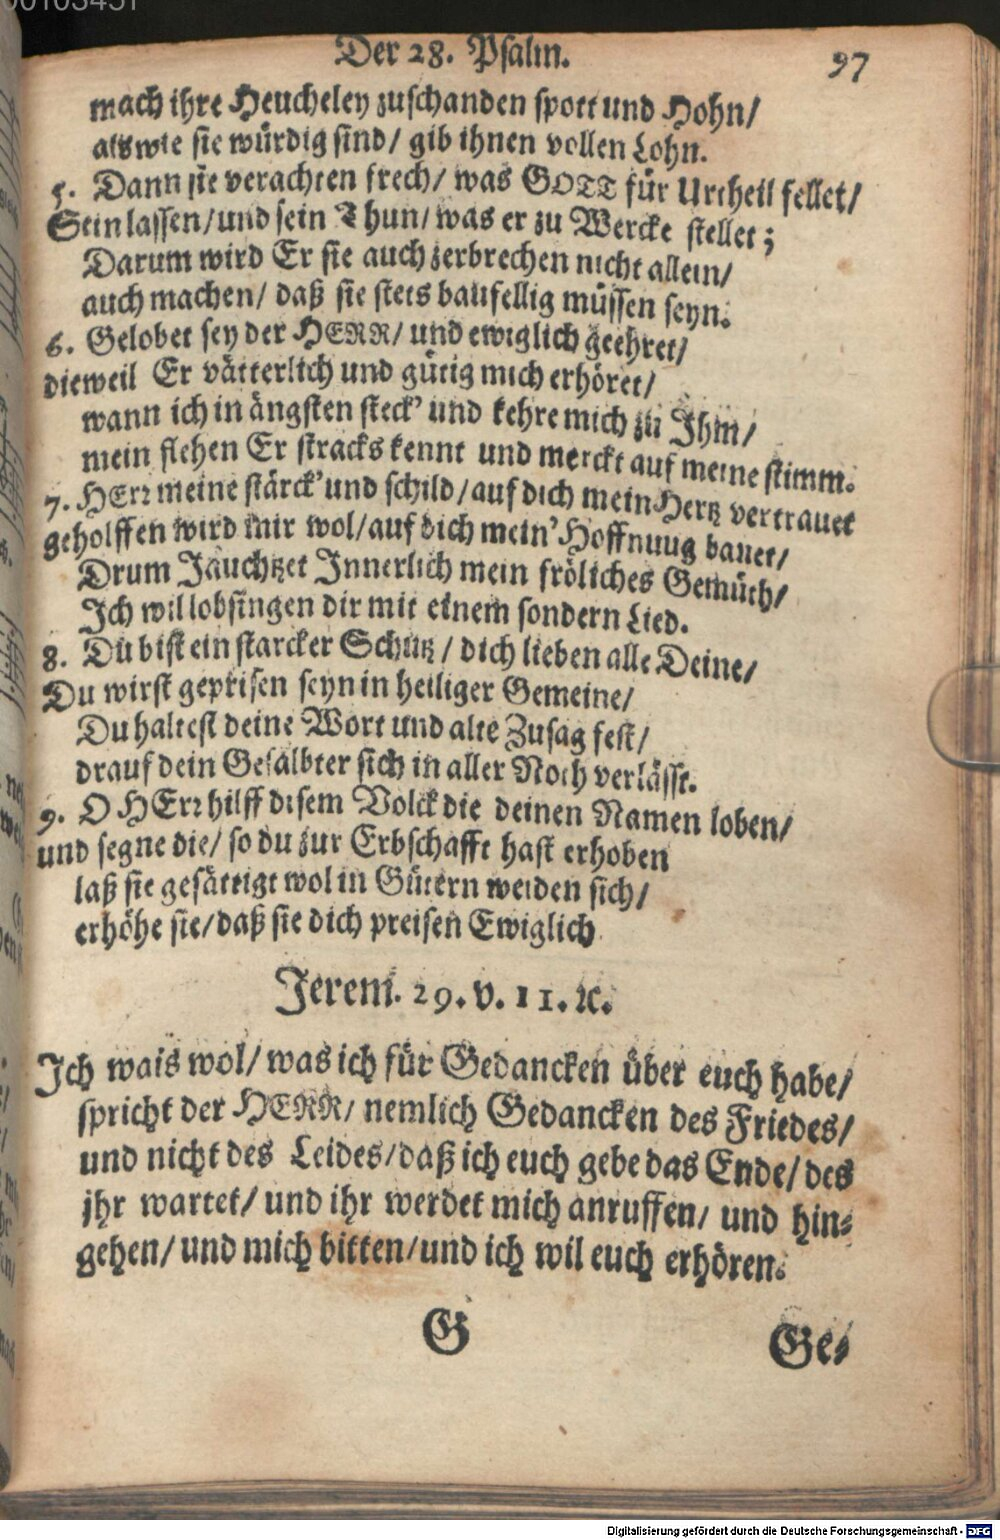 Der 28. Psalm. 97
mach ihre Heucheley zuschanden spott und Hohn/
als wie sie würdig sind/ gib ihnen vollen Lohn.
5. Dann sie verachten frech/ was GOTT für Urtheil fellet/
Sein lassen/ und sein Thun/ was er zu Wercke stellet;
Darum wird Er sie auch zerbrechen nicht allein/
auch machen/ daß sie stets baufellig müssen seyn.
6. Gelobet sey der HERR/ und ewiglich geehret/
dieweil Er vätterlich und gütig mich erhöret/
wann ich in ängsten steck' und kehre mich zu Ihm/
mein flehen Er stracks kennt und merckt auf meine stimm.
7. HErr meine stärck' und schild/ auf dich mein Hertz vertrauet
geholffen wird mir wol/ auf dich mein' Hoffnuug bauet/
Drum Jauchtzet Innerlich mein fröliches Gemüth/
Ich wil lobsingen dir mit einem sondern Lied.
8. Du bist ein starcker Schutz/ dich lieben alle Deine/
Du wirst geprisen seyn in heiliger Gemeine/
Du haltest deine Wort und alte Zusag fest/
drauf dein Gesalbter sich in aller Noth verlässt.
9. O HErr hilff disem Volck die deinen Namen loben/
und segne die/ so du zur Erbschafft hast erhoben
laß sie gesättigt wol in Gütern weiden sich/
erhöhe sie/ daß sie dich preisen Ewiglich
Jerem. 29. v. 11. ꝛc.
Ich wais wol/ was ich für Gedancken über euch habe/
spricht der HERR/ nemlich Gedancken des Friedes/
und nicht des Leides/ daß ich euch gebe das Ende/ des
jhr wartet/ und ihr werdet mich anruffen/ und hin-
gehen/ und mich bitten/ und ich wil euch erhören.
G Ge-
Digitalisierung gefördert durch die Deutsche Forschungsgemeinschaft - DFG